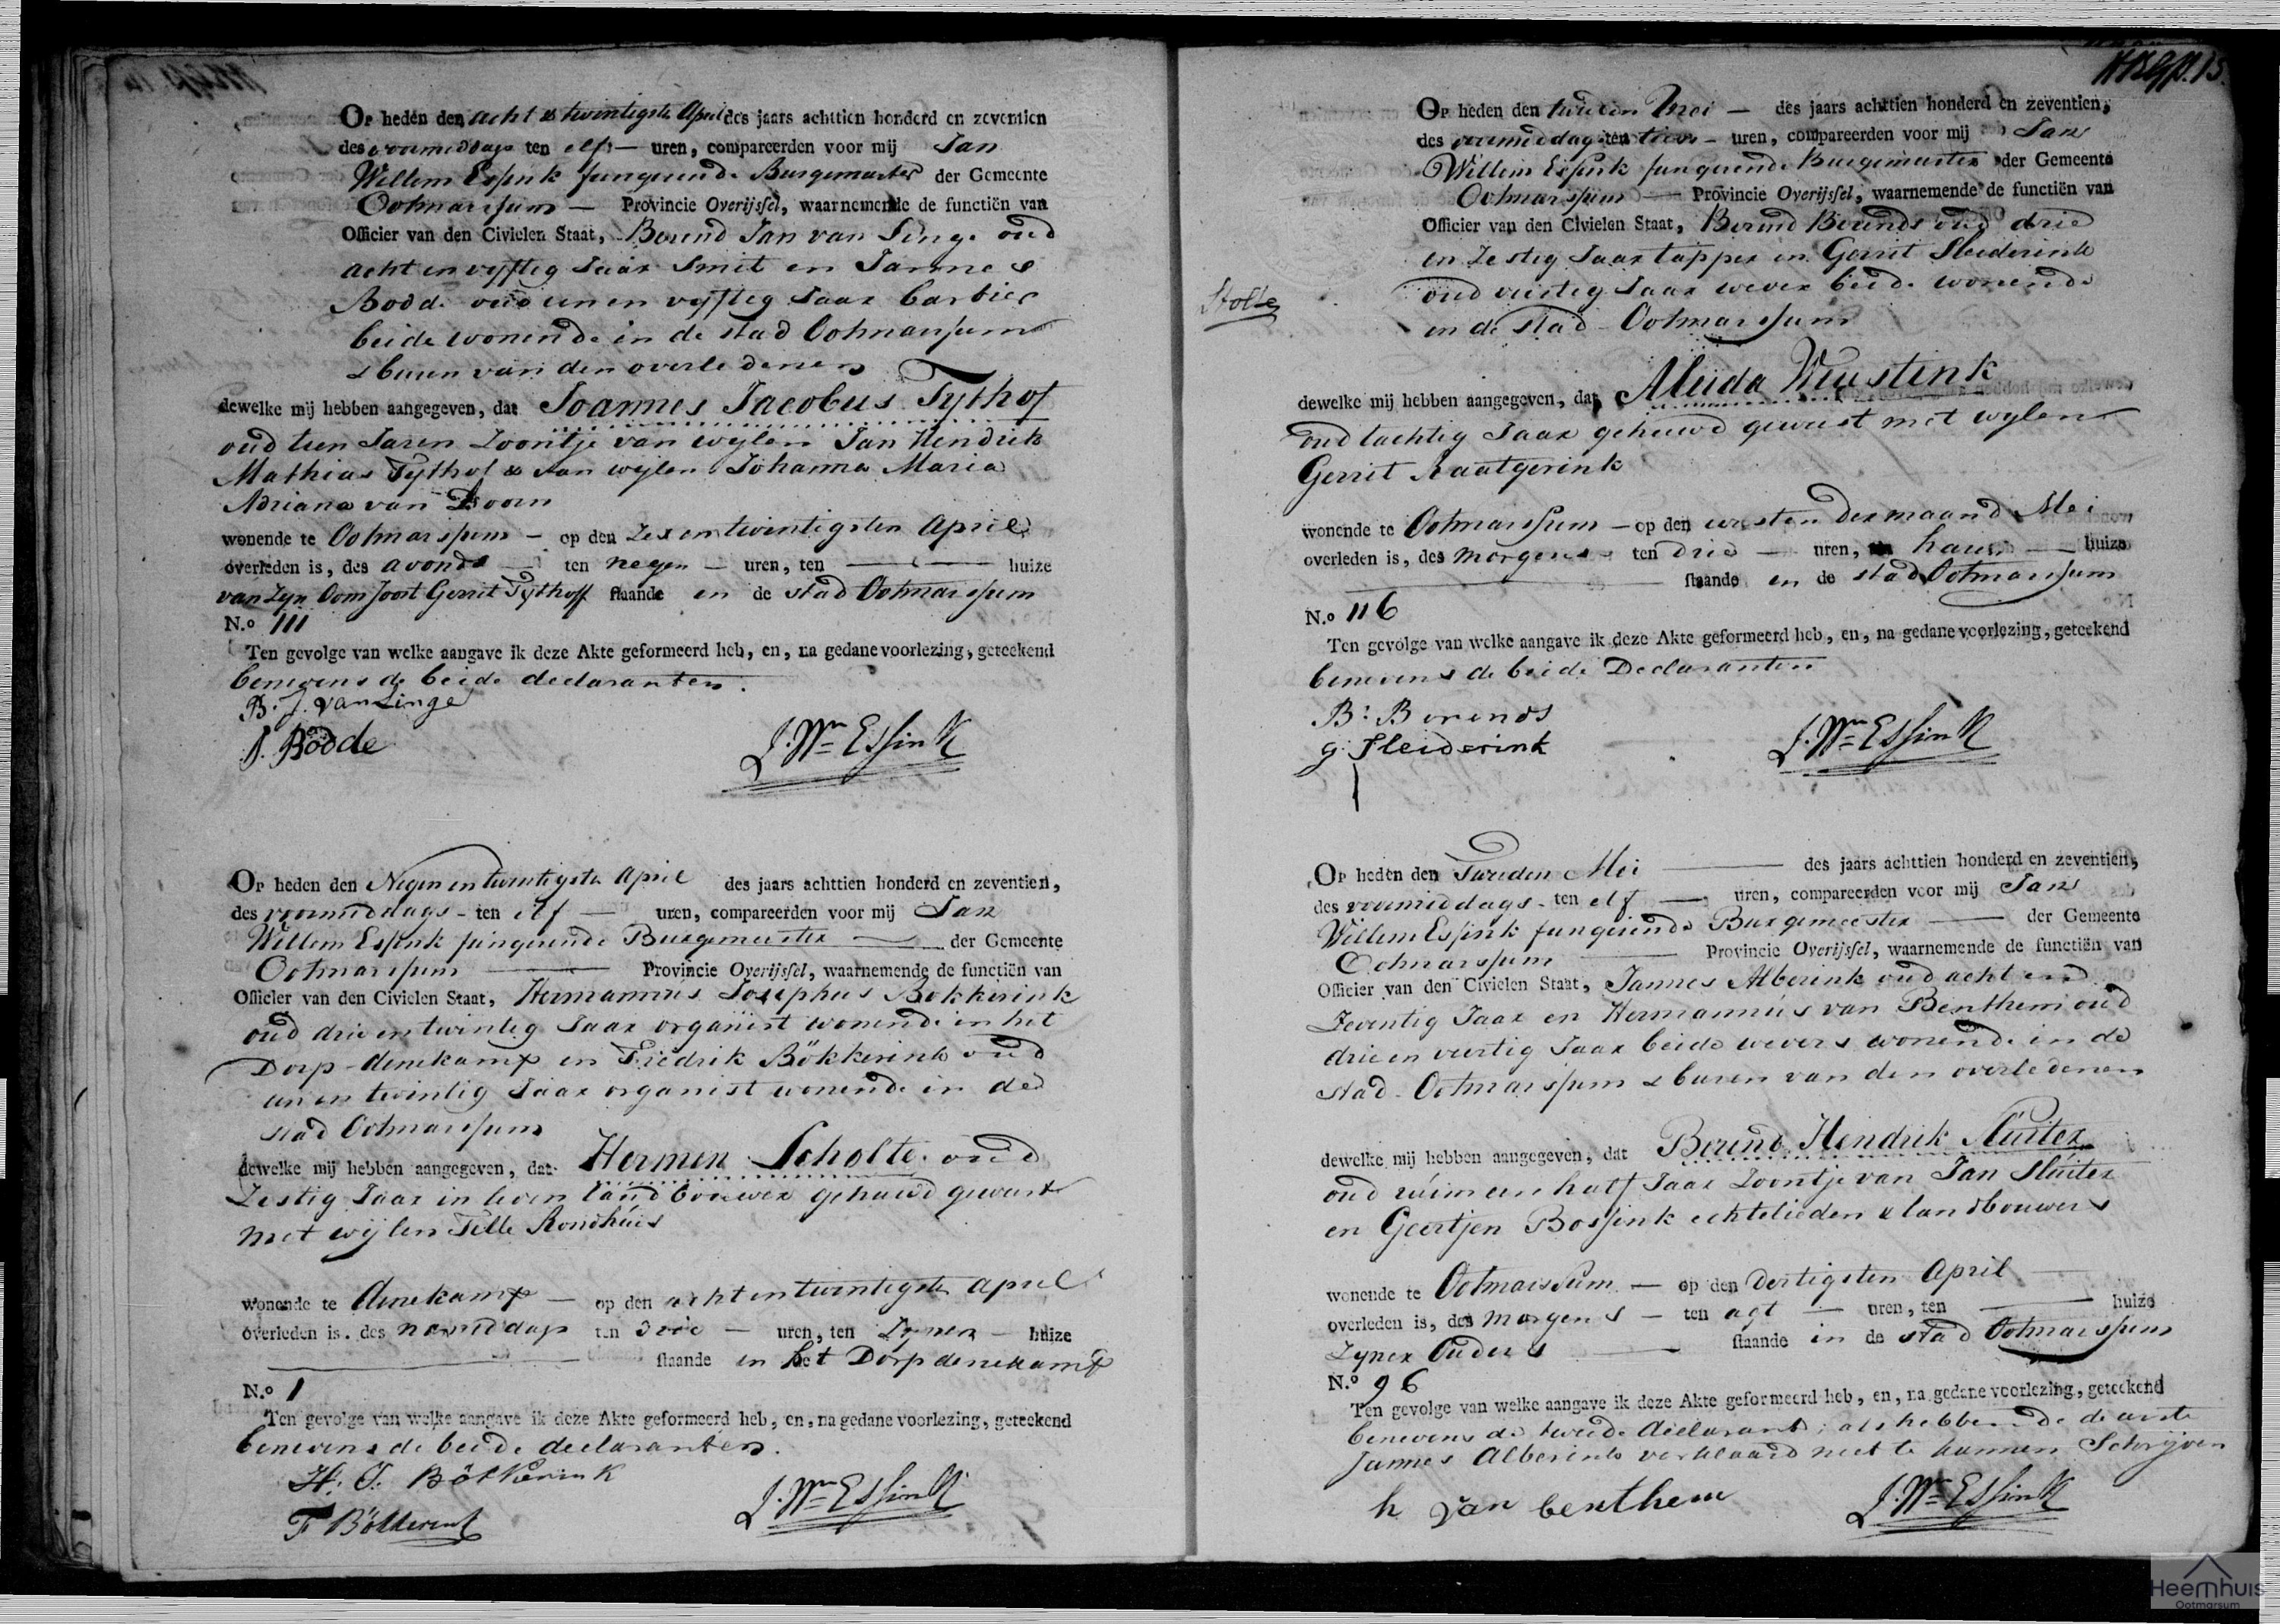 Op heden den acht & twintigste April des jaars achttien honderd en zeventien
des voormiddags ten elf — uren, compareerden voor mij Jan
Willem Essink fungerende Burgemeester der Gemeente
Ootmarssum — Provincie Overijssel, waarnemende de functiën van
Officier van den Civielen Staat, Berend Jan van Linge oud
acht en vyftig Jaar Smit en Jannes
Bodde oud een en vyftig Jaar barbier
beide wonende in de stad Ootmarssum
& buren van den overledenen
dewelke mij hebben aangegeven, dat Joannes Jacobus Tythof
oud tien Jaren Zoontje van wylen Jan Hendrik
Mathias Tythof & van wylen Johanna Maria
Adriana van Doorn
wonende te Ootmarssum — op den Zes en twintigsten April
overleden is, des avonds — ten negen — uren, ten — huize
van Zyn Oom Joost Gerrit Tythoff staande in de stad Ootmarssum
N.o 111
Ten gevolge van welke aangave ik deze Akte geformeerd heb, en, na gedane voorlezing, geteekend
benevens de beide declaranten.
B. J. van Linge
J. Bodde
J. Wm Essink
Op heden den Negen en twintigste April des jaars achttien honderd en zeventien,
des voormiddags - ten elf — uren, compareerden voor mij Jan
Willem Essink fungerende Burgemeester — der Gemeente
Ootmarssum — Provincie Overijssel, waarnemende de functiën van
Officier van den Civielen Staat, Hermannus Josephus Bökkerink
oud drie en twintig Jaar organist wonende in het
Dorp denekamp en Fredrik Bökkerink oud
een en twintig Jaar organist wonende in de
stad Ootmarssum
dewelke mij hebben aangegeven, dat Hermen Scholte oud
Zestig Jaar in leven landbouwer gehuwd geweest
met wijlen Rondhuis
wonende te denekamp — op den acht en twintigste april
overleden is, des namiddags ten drie — uren, ten Zynen — huize
staande in het Dorp denekamp
N.o 1
Ten gevolge van welke aangave ik deze Akte geformeerd heb, en, na gedane voorlezing, geteekend
benevens de beide declaranten.
H: J: Bökkerink
F Bökkerink
J. Wm Essink
Op heden den tweeden Mei — des jaars achttien honderd en zeventien,
des voormiddags ten tien — uren, compareerden voor mij Jan
Willem Essink fungerende Burgemeester der Gemeente
Ootmarssum — Provincie Overijssel, waarnemende de functiën van
Officier van den Civielen Staat, Berend Berends oud drie
en Zestig Jaar tapper en Gerrit Sleiderink
oud veertig Jaar wever beide wonende
in de stad Ootmarssum
Stolte
dewelke mij hebben aangegeven, dat Aleida Weustink
oud tachtig Jaar gehuwd geweest met wylen
Gerrit Raatgerink
wonende te Ootmarssum — op den eersten der maand Mei
overleden is, des morgens — ten drie — uren, haren — huize
staande in de stad Ootmarssum
N.o 116
Ten gevolge van welke aangave ik deze Akte geformeerd heb, en, na gedane voorlezing, geteekend
benevens de beide Declaranten
B: Berends
g: sleiderink
J. Wm Essink
Op heden den Tweeden Mei — des jaars achttien honderd en zeventien,
des voormiddags - ten elf — uren, compareerden voor mij Jan
Willem Essink fungerende Burgemeester — der Gemeente
Ootmarssum — Provincie Overijssel, waarnemende de functiën van
Officier van den Civielen Staat, Jannes Alberink oud acht en
Zeventig Jaar en Hermannus van Benthem oud
drie en veertig Jaar beide wevers wonende in de
stad Ootmarssum & buren van den overledenen
dewelke mij hebben aangegeven, dat Berend Hendrik Sluiter
oud ruim een half Jaar Zoontje van Jan Sluiter
en Geertjen Bossink echtelieden & landbouwers
wonende te Ootmarssum — op den dertigsten April
overleden is, des morgens — ten agt — uren, ten — huize
Zyner Ouders — staande in de stad Ootmarssum
N.o 96
Ten gevolge van welke aangave ik deze Akte geformeerd heb, en, na gedane voorlezing, geteekend
benevens de tweede declarant, als hebbende de eerste
Jannes Alberink verklaard niet te kunnen Schrijven
h van benthem
J. Wm Essink
Heemhuis
Ootmarsum